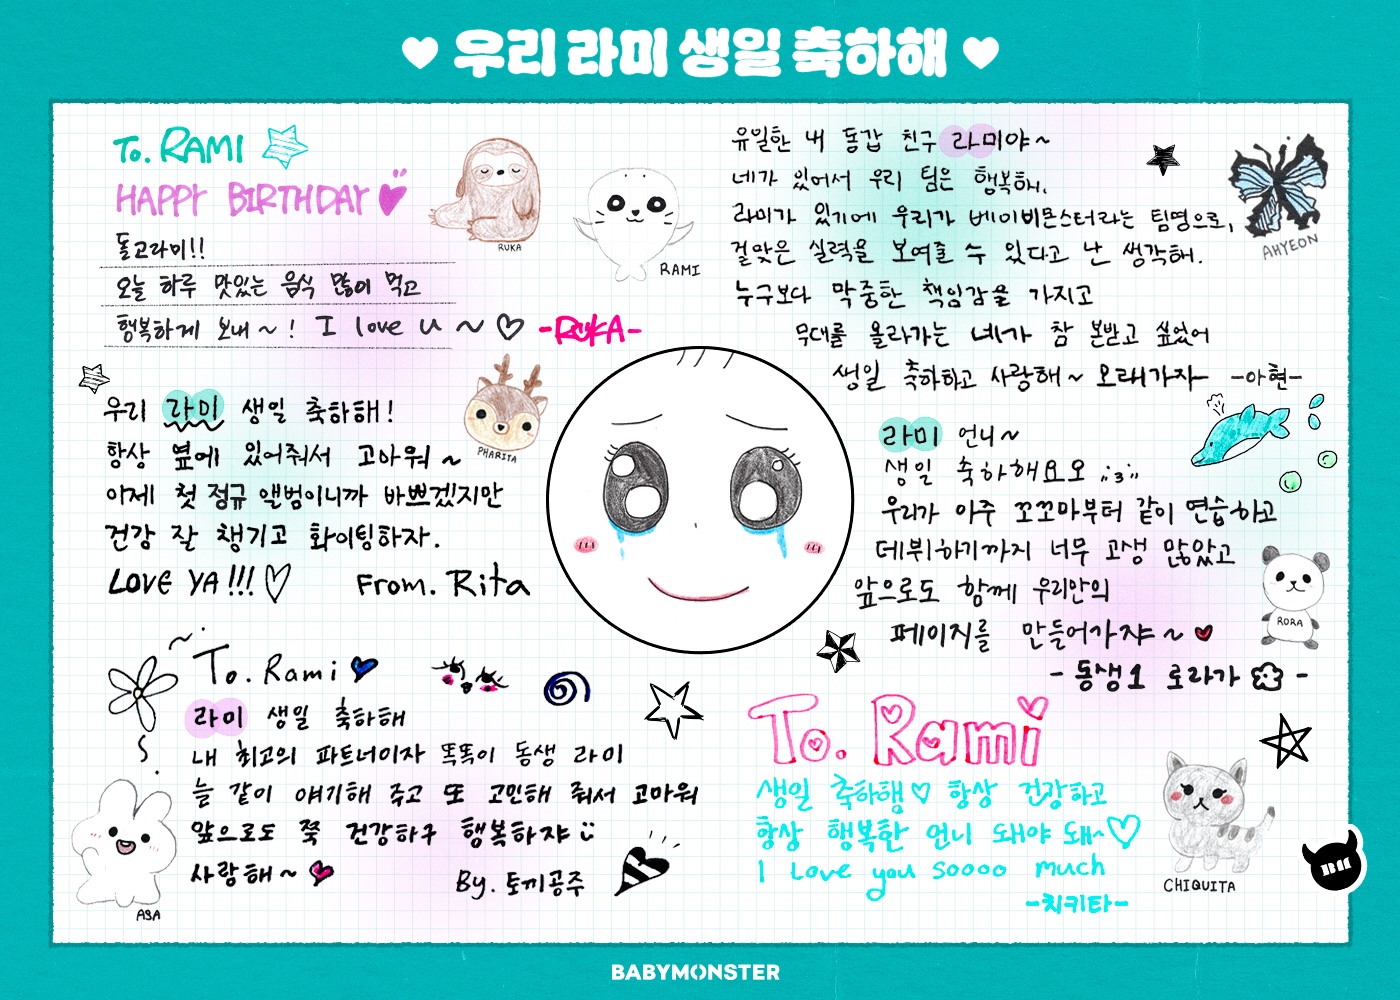 우리 라미 생일 축하해
To. RAMI
HAPPY BIRTHDAY
돌고라미!!
오늘 하루 맛있는 음식 많이 먹고
행복하게 보내 ~ ! I love u ~ ♡ -RUKA-
RUKA
RAMI
유일한 내 동갑 친구 라미야~
네가 있어서 우리 팀은 행복해.
라미가 있기에 우리가 베이비몬스터라는 팀명으로,
걸맞은 실력을 보여줄 수 있다고 난 생각해.
누구보다 막중한 책임감을 가지고
무대를 올라가는 네가 참 본받고 싶었어
생일 축하하고 사랑해~ 오래가자 -아현-
AHYEON
우리 라미 생일 축하해!
항상 옆에 있어줘서 고마워 ~
이제 첫 정규 앨범이니까 바쁘겠지만
건강 잘 챙기고 화이팅하자.
LOVE YA!!!♡ From. Rita
PHARITA
라미 언니~
생일 축하해요오
우리가 아주 꼬꼬마부터 같이 연습하고
데뷔하기까지 너무 고생 많았고
앞으로도 함께 우리만의
페이지를 만들어가쟈~
- 동생1 로라가 -
RORA
To. Rami
라미 생일 축하해
내 최고의 파트너이자 똑똑이 동생 라미
늘 같이 얘기해 주고 또 고민해 줘서 고마워
앞으로도 쭉 건강하구 행복하쟈
사랑해~
By. 토끼공주
ASA
To. Rami
생일 축하햄♡ 항상 건강하고
항상 행복한 언니 돼야 돼~♡
I Love you soooo much
-치키타-
CHIQUITA
BABYMONSTER